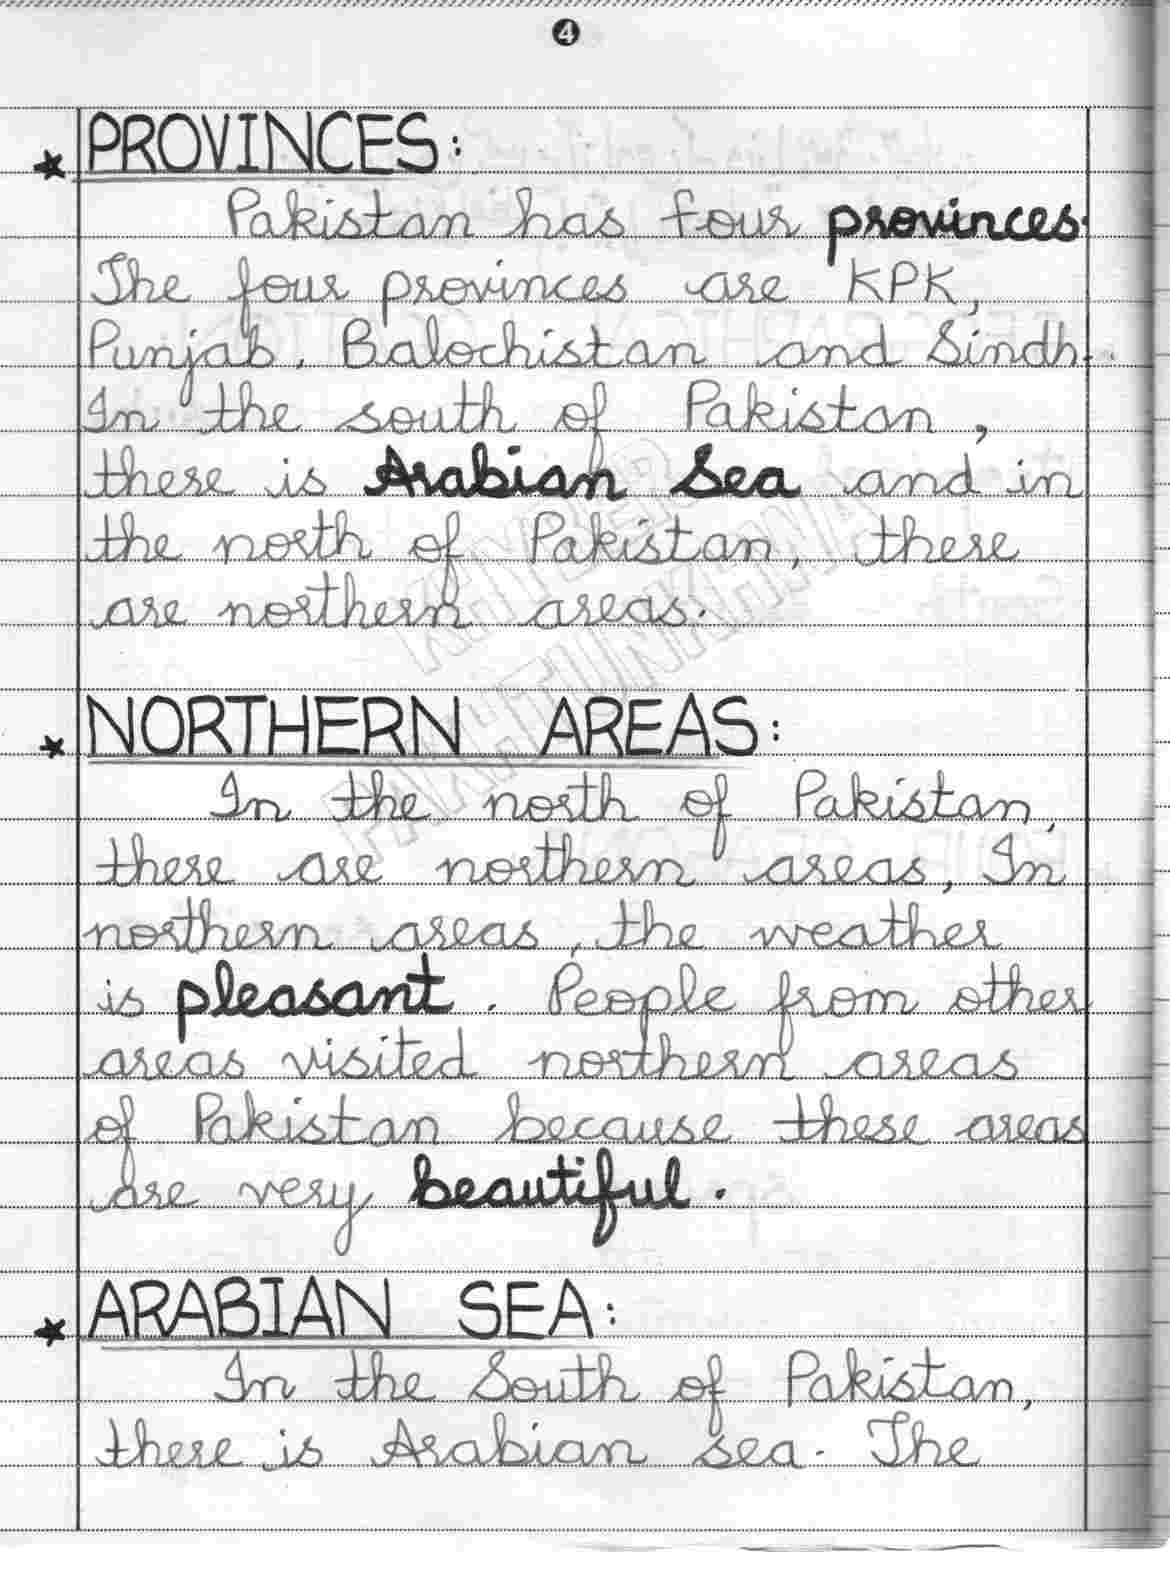 4
PROVINCES:
Pakistan has four provinces.
The four provinces are KPK,
Punjab, Balochistan and Sindh.
In the south of Pakistan,
there is Arabian Sea and in
the north of Pakistan, there
are northern areas.
KHYBER
PAKHTUNKHWA
NORTHERN AREAS:
In the north of Pakistan,
there are northern areas, In
northern areas, the weather
is pleasant. People from other
areas visited northern areas
of Pakistan because these areas
are very beautiful.
ARABIAN SEA:
In the South of Pakistan,
there is Arabian sea. The